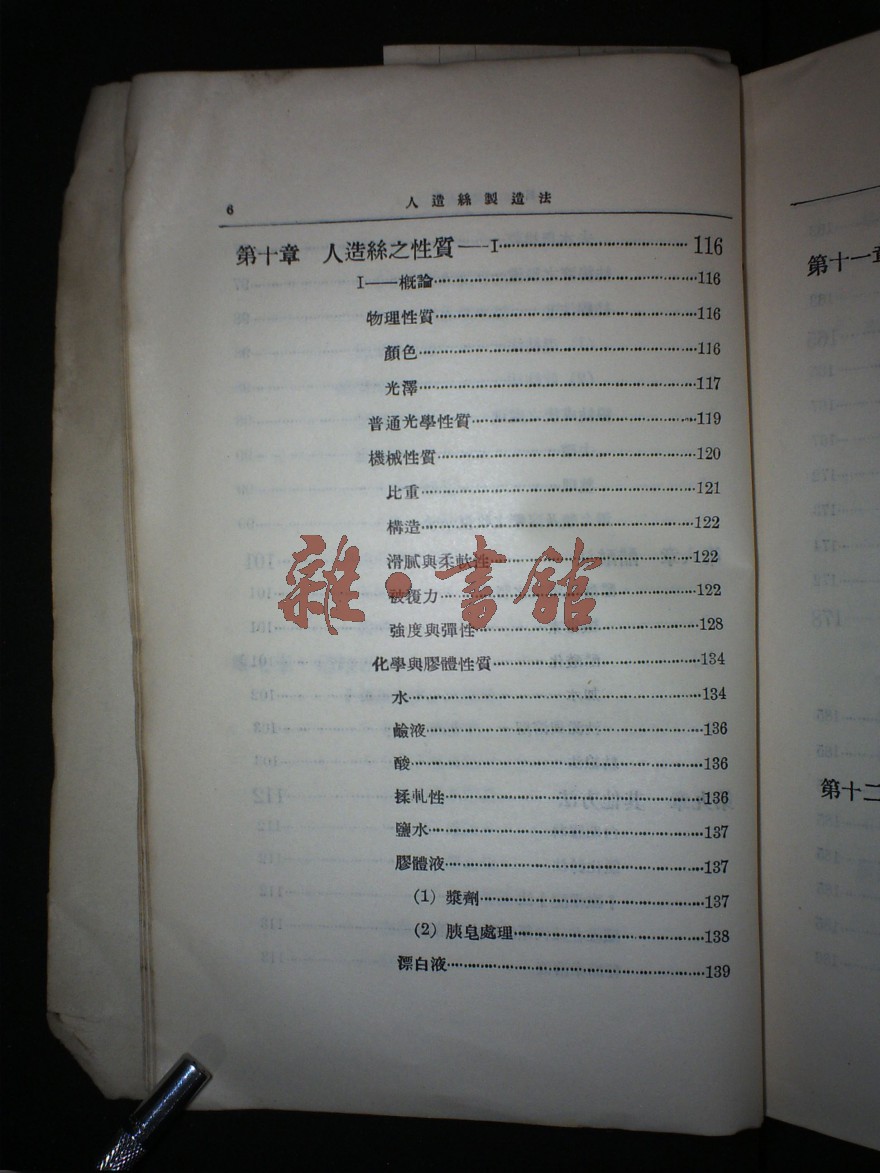 6 人造絲製造法
第十章 人造絲之性質——I 116
I——概論 116
物理性質 116
顏色 116
光澤 117
普通光學性質 119
機械性質 120
比重 121
構造 122
滑膩與柔軟性 122
被覆力 122
強度與彈性 128
化學與膠體性質 134
水 134
鹼液 136
酸 136
揉軋性 136
鹽水 137
膠體液 137
(1) 漿劑 137
(2) 胰皂處理 138
漂白液 139
第十一章
第十二
雜·書館